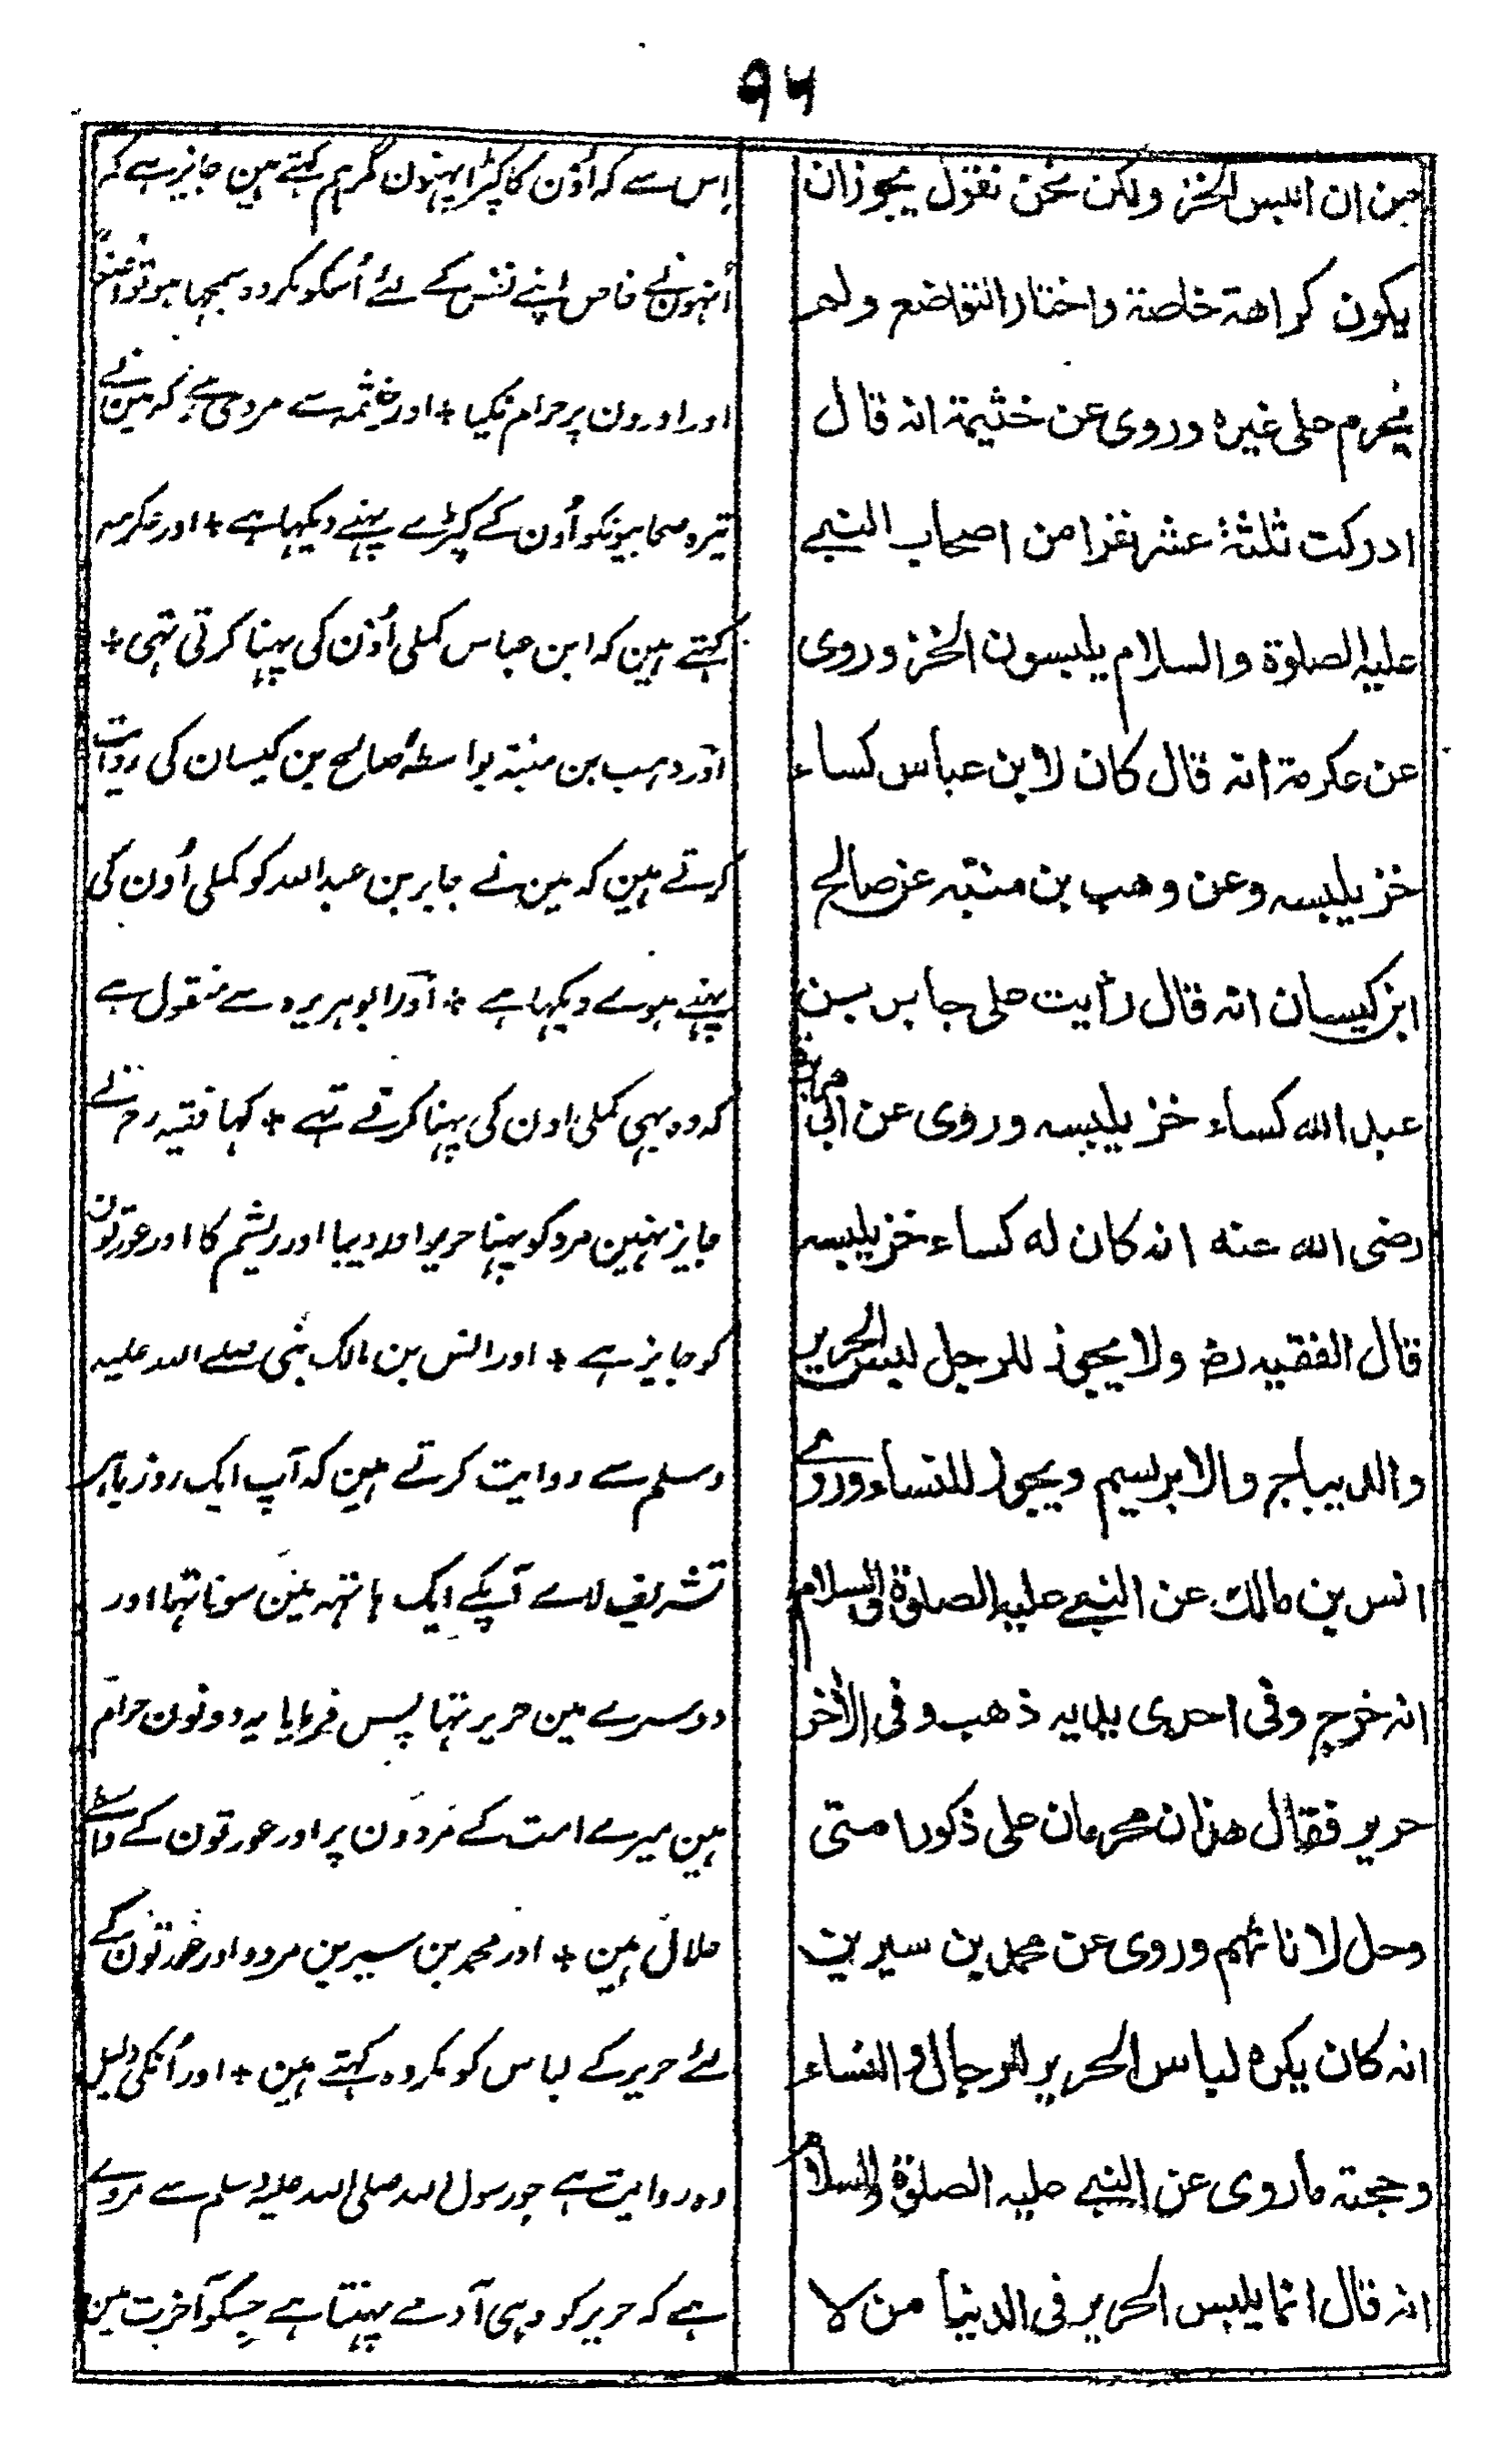 ۹۵
من ان البس الخز ولكن نحن نقول يجوز ان
يكون كراهة خاصة واختار التواضع ولم
يحرم على غيره وروى عن خثيمة انه قال
ادركت ثلثة عشر نفرا من اصحاب النبي
عليه الصلوة والسلام يلبسون الخز وروى
عن عكرمة انه قال كان لابن عباس كساء
خز يلبسه وعن وهب بن منبه عن صالح
ابن كيسان انه قال رأيت على جابر بن
عبد الله كساء خز يلبسه وروى عن ابي هريرة
رضى الله عنه انه كان له كساء خز يلبسه
قال الفقيه رح ولا يجوز للرجل لبس الحرير
والديباج والابريسم ويجوز للنساء وروى
انس بن مالك عن النبي عليه الصلوة والسلام
انه خرج وفى احدى يديه ذهب وفى الأخر
حرير فقال هذان محرمان على ذكور امتى
وحل لاناثهم وروى عن محمد بن سيرين
انه كان يكره لباس الحرير للرجال والنساء
وحجته ما روى عن النبي عليه الصلوة والسلام
انه قال انما يلبس الحرير فى الدنيا من لا
اِس سے کہ اُون کا کپڑا پہنون مگر ہم کہتے ہین جایز ہے کہ
اُنہون نے خاص اپنے نفس کے لئے اُسکو مکروہ سمجہا ہو تواضعاً
اور اورون پر حرام نکیا + اور خثیمہ سے مروی ہے کہ مین نے
تیرہ صحابیونکو اُون کے کپڑے پہنے دیکہا ہے + اور عکرمہ
کہتے ہین کہ ابن عباس کملی اُون کی پہنا کرتی تہی +
اور وہب بن منبہ بواسطۂ صالح بن کیسان کی روایت
کرتے ہین کہ مین نے جابر بن عبد اللہ کو کملی اُون کی
پہنے ہوے دیکہا ہے + اور ابو ہریرہ سے منقول ہے
کہ وہ بہی کملی اون کی پہنا کرتے تہے + کہا فقیہ رح نے
جایز نہین مرد کو پہننا حریر اور دیبا اور ریشم کا اور عورتون
کو جایز ہے + اور انس بن مالک نبی صلے اللہ علیہ
وسلم سے روایت کرتے ہین کہ آپ ایک روز باہر
تشریف لاے آپکے ایک ہاتہہ مین سونا تہا اور
دوسرے مین حریر تہا پس فرمایا یہ دونون حرام
ہین میرے امت کے مردون پر اور عورتون کے واسطے
حلال ہین + اور محمد بن سیرین مرد و اور عورتون کے
لئے حریر کے لباس کو مکروہ کہتے ہین + اور اُنکی دلیل
وہ روایت ہے جو رسول اللہ صلی اللہ علیہ وسلم سے مروے
ہے کہ حریر کو وہی آدمے پہنتا ہے جسکو آخرت مین